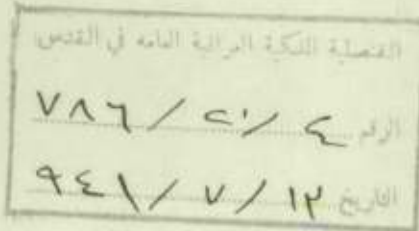 القنصلية الملكية العراقية العامه في القدس
الرقم ٤ / ٢٠ / ٧٨٦
التاريخ ١٢ / ٧ / ٩٤١